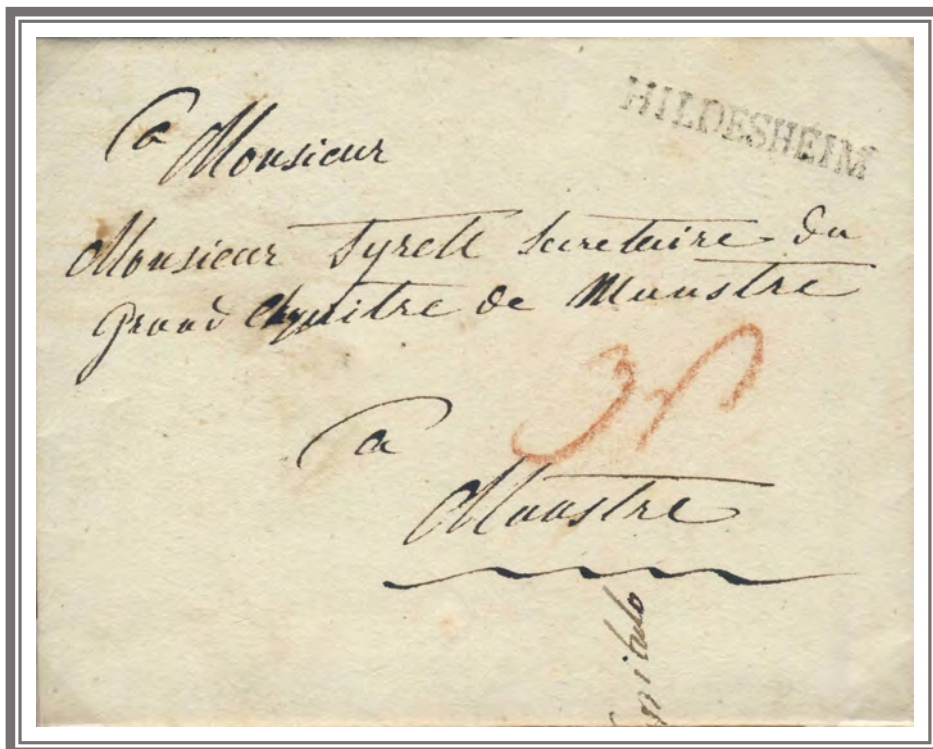 HILDESHEIM
a Monsieur
Monsieur Tyrell Secretaire du
Grand Chapitre de Munstre
a
Munstre